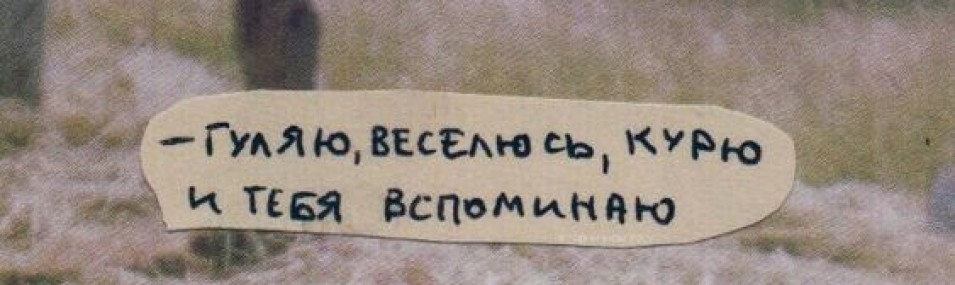 – ГУЛЯЮ, ВЕСЕЛЮСЬ, КУРЮ
И ТЕБЯ ВСПОМИНАЮ